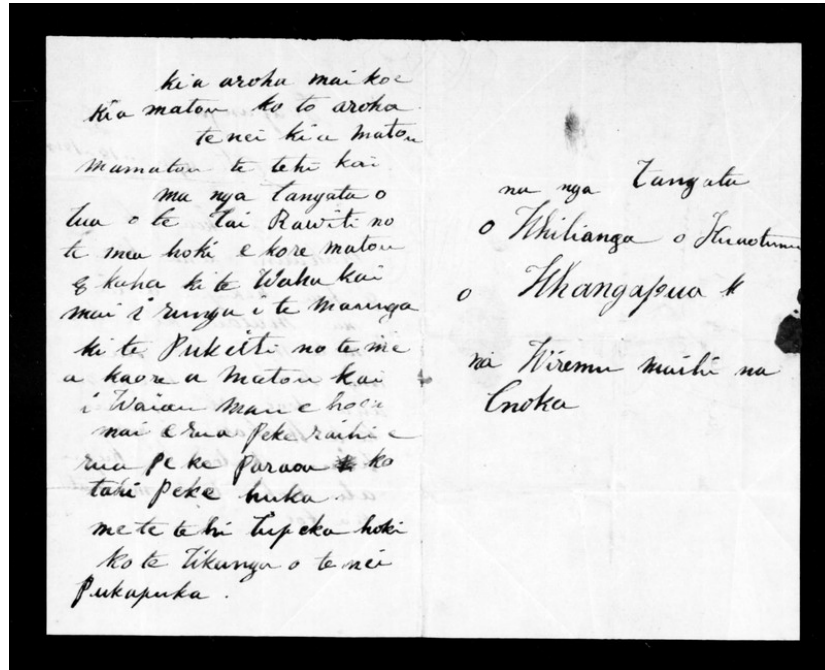 kia aroha mai koe
kia matou ko to aroha
tenei kia matou
mamatou te tehi kai
ma nga tangata o
tua o te Tai Rawiti no
te mea hoki e kore matou
e kaha ki te Waha kai
mai i runga i te maunga
ki te Pukeiti no te me
a kaore a matou kai
i Waiau Mau e hoeu
mai e rua Peke raihi e
rua Pe ke Paraoa ko
tahi Peke huka
me te te hi tupeka hoki
ko te tikanga o te nei
Pukapuka.
na nga tangata
o Whitianga o Kuaotunu
o Whangapua
na Wiremu maihi na
Enoka